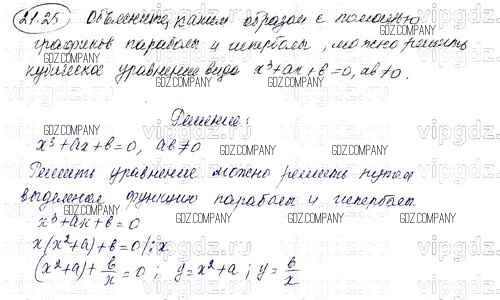 21.25 Объясните, каким образом с помощью
графиков параболы и гиперболы, можно решить
кубическое уравнение вида x³+ax+b=0, ab≠0.
GDZ.COMPANY GDZ.COMPANY GDZ.COMPANY
Решение:
x³+ax+b=0, ab≠0
GDZ.COMPANY GDZ.COMPANY GDZ.COMPANY
Решить уравнение можно решить путем
выделения функцию парабол и гипербол
x³+ax+b=0
GDZ.COMPANY GDZ.COMPANY GDZ.COMPANY
x(x²+a)+b=0 |:x
(x²+a)+b/x=0; y=x²+a; y=b/x
GDZ.COMPANY GDZ.COMPANY GDZ.COMPANY